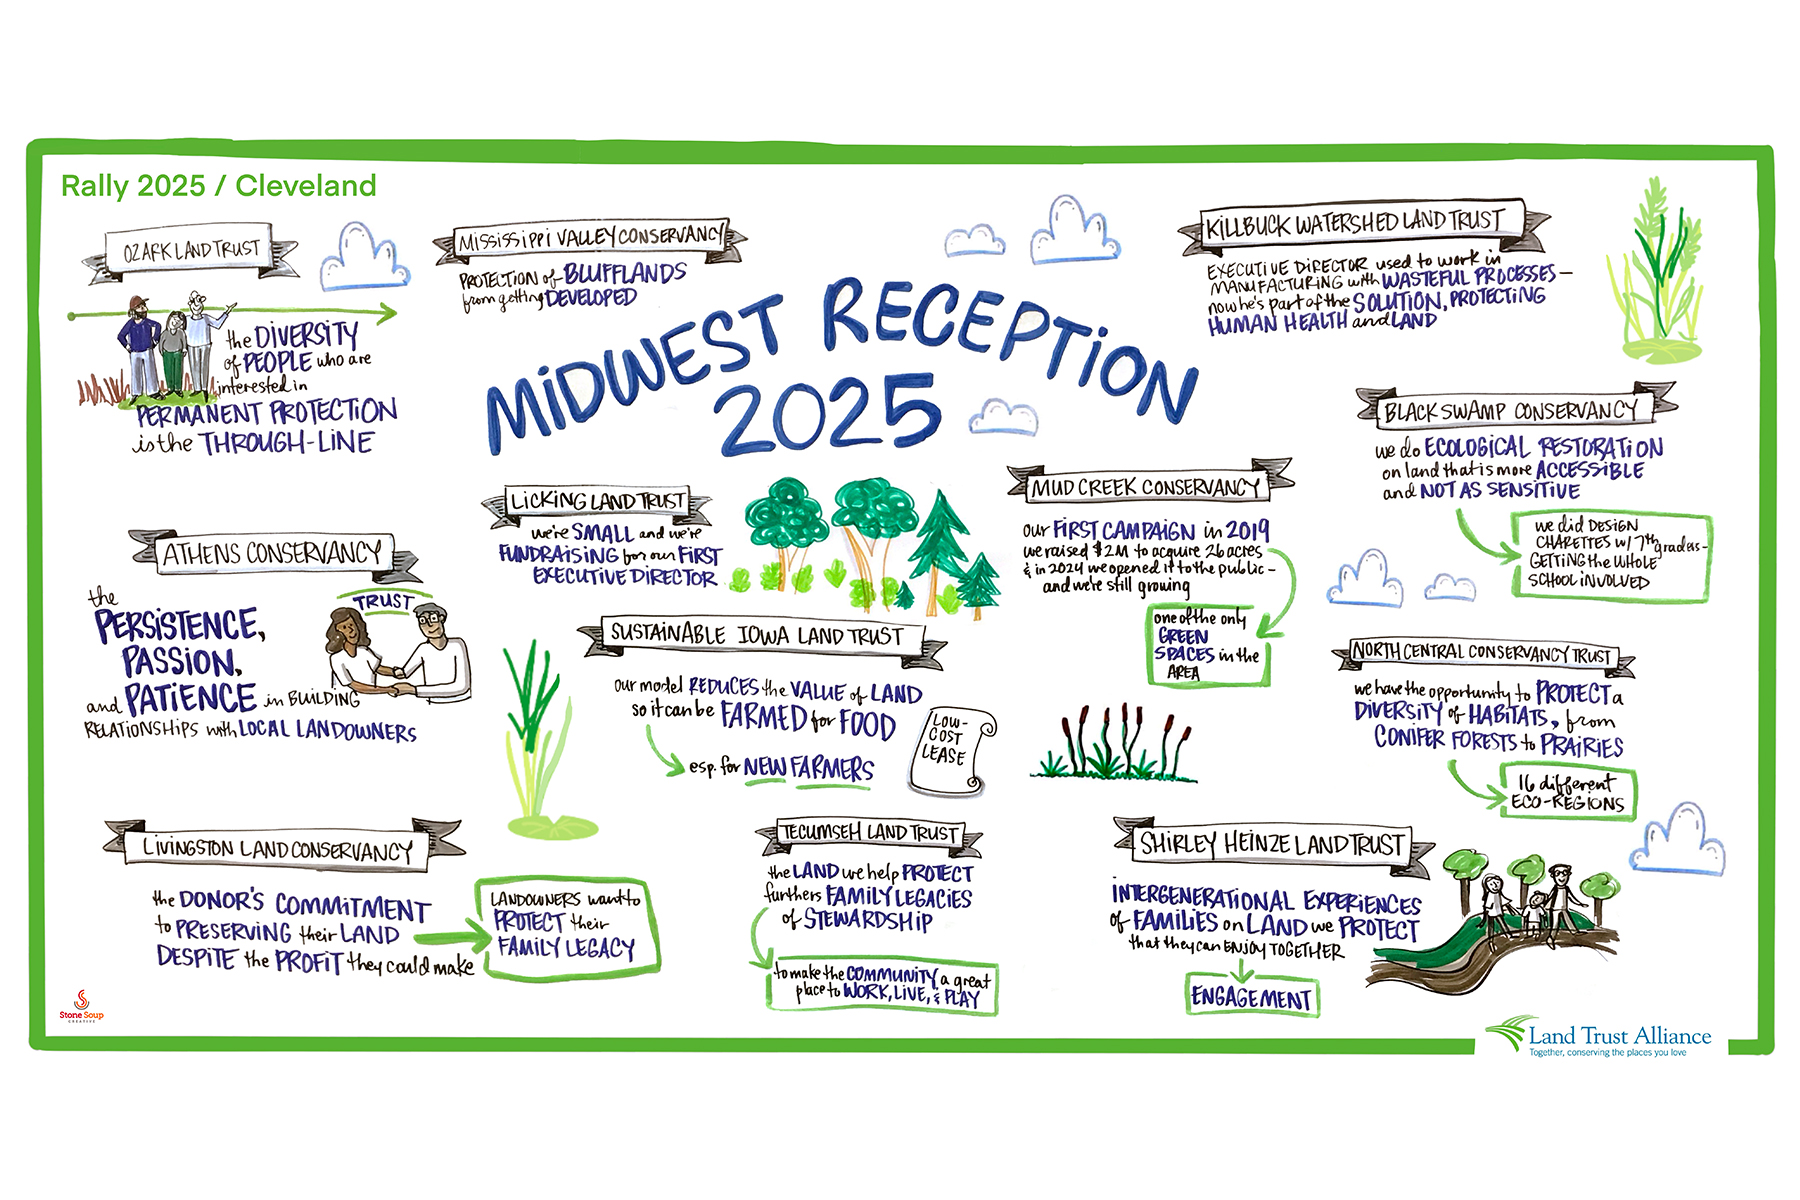 Rally 2025 / Cleveland
OZARK LAND TRUST
the DIVERSITY
of PEOPLE who are
interested in
PERMANENT PROTECTION
is the THROUGH-LINE
MISSISSIPPI VALLEY CONSERVANCY
PROTECTION of BLUFFLANDS
from getting DEVELOPED
MIDWEST RECEPTION
2025
KILLBUCK WATERSHED LAND TRUST
EXECUTIVE DIRECTOR used to work in
MANUFACTURING with WASTEFUL PROCESSES –
now he's part of the SOLUTION, PROTECTING
HUMAN HEALTH and LAND
BLACK SWAMP CONSERVANCY
we do ECOLOGICAL RESTORATION
on land that is more ACCESSIBLE
and NOT AS SENSITIVE
we did DESIGN
CHARETTES w/ 7th graders –
GETTING the WHOLE
SCHOOL INVOLVED
LICKING LAND TRUST
we're SMALL and we're
FUNDRAISING for our FIRST
EXECUTIVE DIRECTOR
MUD CREEK CONSERVANCY
our FIRST CAMPAIGN in 2019
we raised $2M to acquire 26 acres
& in 2024 we opened it to the public –
and we're still growing
one of the only
GREEN
SPACES in the
AREA
ATHENS CONSERVANCY
the
PERSISTENCE,
PASSION,
and PATIENCE in BUILDING
RELATIONSHIPS with LOCAL LANDOWNERS
TRUST
SUSTAINABLE IOWA LAND TRUST
our model REDUCES the VALUE of LAND
so it can be FARMED for FOOD
esp. for NEW FARMERS
LOW-
COST
LEASE
NORTH CENTRAL CONSERVANCY TRUST
we have the opportunity to PROTECT a
DIVERSITY of HABITATS, from
CONIFER FORESTS to PRAIRIES
16 different
ECO-REGIONS
LIVINGSTON LAND CONSERVANCY
the DONOR'S COMMITMENT
to PRESERVING their LAND
DESPITE the PROFIT they could make
LANDOWNERS want to
PROTECT their
FAMILY LEGACY
TECUMSEH LAND TRUST
the LAND we help PROTECT
furthers FAMILY LEGACIES
of STEWARDSHIP
to make the COMMUNITY a great
place to WORK, LIVE, & PLAY
SHIRLEY HEINZE LAND TRUST
INTERGENERATIONAL EXPERIENCES
of FAMILIES on LAND we PROTECT
that they can ENJOY TOGETHER
ENGAGEMENT
Stone Soup
CREATIVE
Land Trust Alliance
Together, conserving the places you love